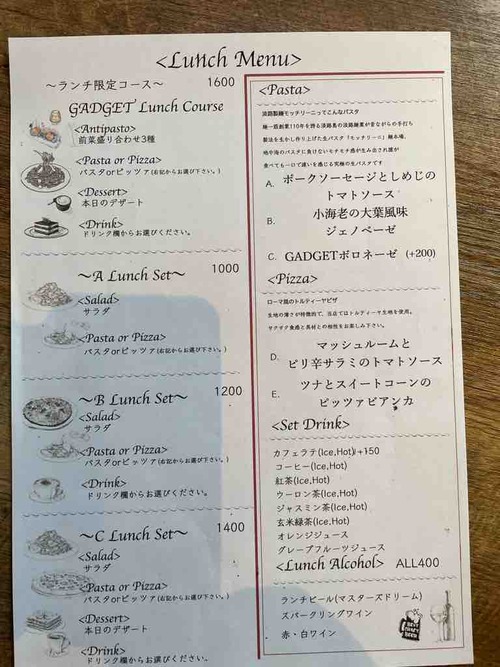 <Lunch Menu>
〜ランチ限定コース〜 1600
GADGET Lunch Course
<Antipasto>
前菜盛り合わせ3種
<Pasta or Pizza>
パスタorピッツァ(右記からお選び下さい。)
<Dessert>
本日のデザート
<Drink>
ドリンク欄からお選びください。
〜A Lunch Set〜 1000
<Salad>
サラダ
<Pasta or Pizza>
パスタorピッツァ(右記からお選び下さい。)
〜B Lunch Set〜 1200
<Salad>
サラダ
<Pasta or Pizza>
パスタorピッツァ(右記からお選び下さい。)
<Drink>
ドリンク欄からお選びください。
〜C Lunch Set〜 1400
<Salad>
サラダ
<Pasta or Pizza>
パスタorピッツァ(右記からお選び下さい。)
<Dessert>
本日のデザート
<Drink>
ドリンク欄からお選びください。
<Pasta>
淡路製麺モッチリーニってこんなパスタ
麺一筋創業110年を誇る淡路島の淡路麺業が昔ながらの手打ち
製法を生かし作り上げた生パスタ「モッチリーニ」麺本場、
地中海のパスタに負けないモチモチ感が生み出され誰が
食べても一口で違いを感じる究極の生パスタです
A. ポークソーセージとしめじの
トマトソース
B. 小海老の大葉風味
ジェノベーゼ
C. GADGETボロネーゼ (+200)
<Pizza>
ローマ風のトルティーヤピザ
生地の薄さが特徴的で、当店ではトルティーヤ生地を使用。
サクサク食感と具材との相性をお楽しみ下さい。
D. マッシュルームと
ピリ辛サラミのトマトソース
E. ツナとスイートコーンの
ピッツァビアンカ
<Set Drink>
カフェラテ(Ice,Hot)/+150
コーヒー(Ice,Hot)
紅茶(Ice,Hot)
ウーロン茶(Ice,Hot)
ジャスミン茶(Ice,Hot)
玄米緑茶(Ice,Hot)
オレンジジュース
グレープフルーツジュース
<Lunch Alcohol> ALL400
ランチビール(マスターズドリーム)
スパークリングワイン
赤・白ワイン
BEST
CRAFT
BEER